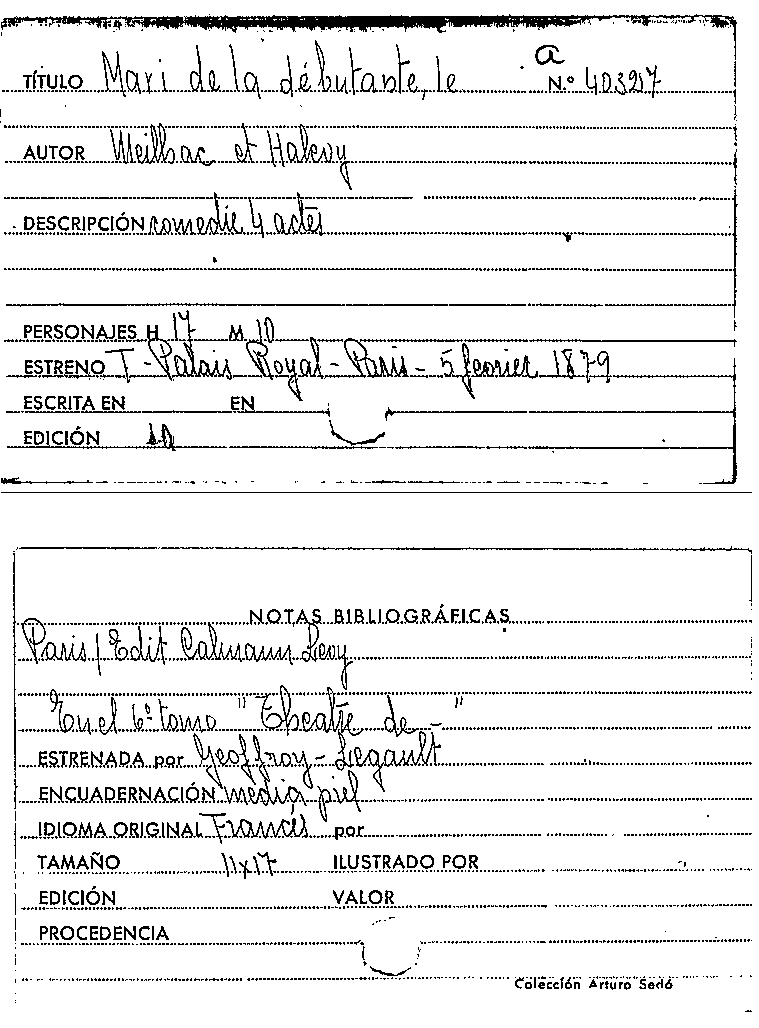 a
TÍTULO Mari de la débutante, le N.º 403217
AUTOR Meilhac et Halevy
DESCRIPCIÓN comedie 4 actes
PERSONAJES H 17 M 10
ESTRENO T - Palais Royal - Paris - 5 fevrier 1879
ESCRITA EN EN
EDICIÓN
NOTAS BIBLIOGRÁFICAS
Paris / Edit Calmann Levy
En el 6º tomo "Theatre de - "
ESTRENADA por Geoffroy - Legault
ENCUADERNACIÓN media piel
IDIOMA ORIGINAL Francés por
TAMAÑO 11x17 ILUSTRADO POR
EDICIÓN VALOR
PROCEDENCIA
Colección Arturo Sedó